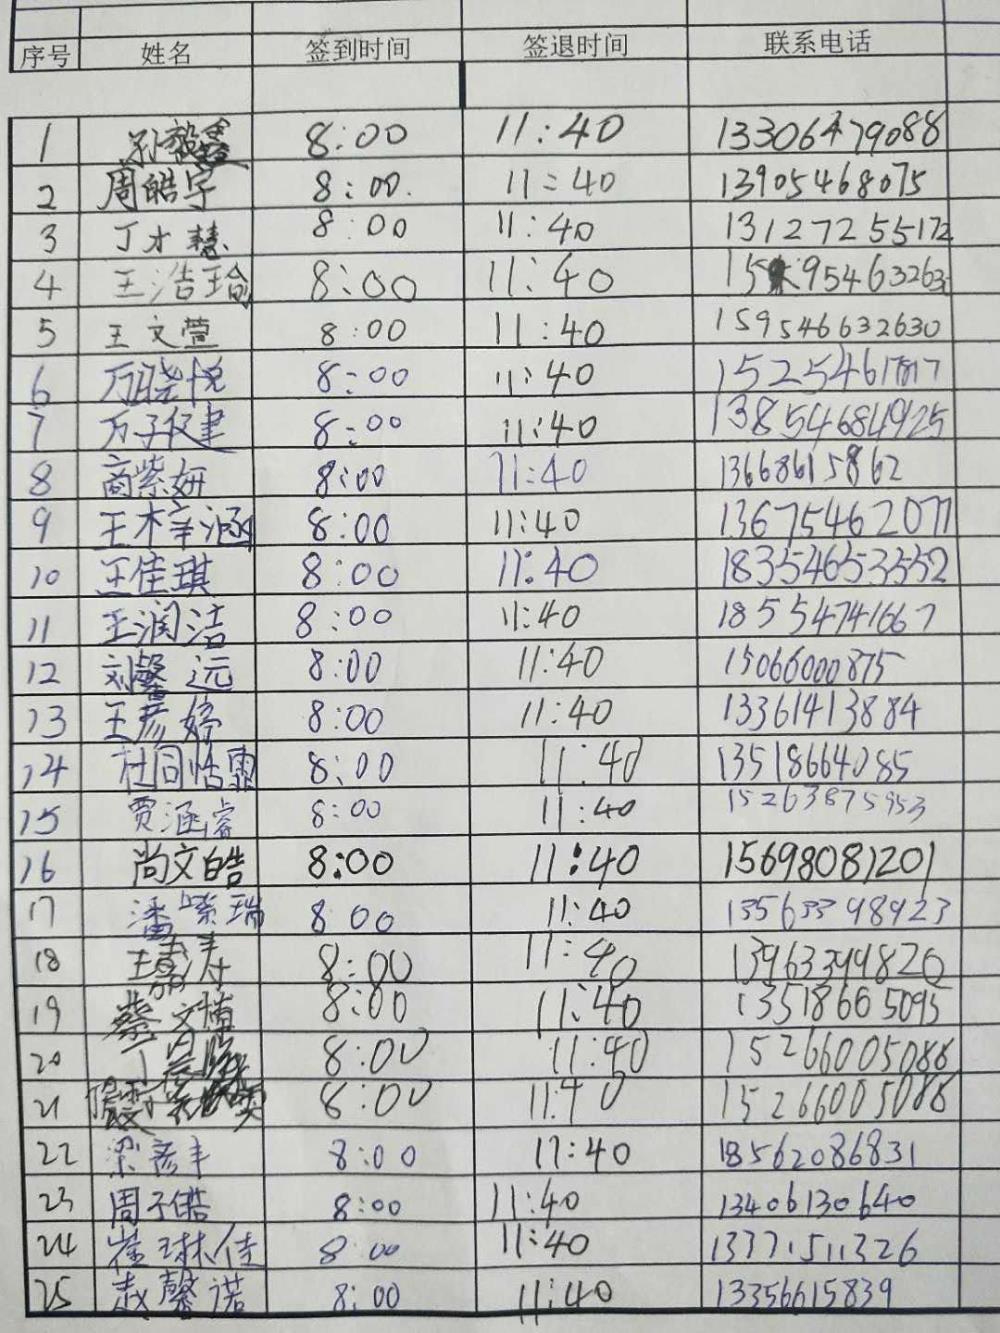 序号 姓名 签到时间 签退时间 联系电话
1 孙毅鑫 8:00 11:40 13306479088
2 周皓宇 8:00. 11:40 13905468075
3 丁才慧 8:00 11:40 13127255172
4 王浩瑜 8:00 11:40
5 王文萱 8:00 11:40 159546632630
6 万晓悦 8:00 11:40
7 万子健 8:00 11:40 13854684925
8 商紫妍 8:00 11:40 13668615862
9 王木辛涵 8:00 11:40 13675462077
10 王佳琪 8:00 11:40 18354653552
11 王润洁 8:00 11:40 18554741667
12 刘馨远 8:00 11:40 15066000875
13 王彦婷 8:00 11:40 13361413884
14 杜同恬霏 8:00 11:40 13518664085
15 贾涵睿 8:00 11:40 15263875953
16 尚文皓 8:00 11:40 15698081201
17 潘紫瑞 8:00 11:40 13563398923
18 8:00 11:40 13963399820
19 8:00 11:40 13518665095
20 8:00 11:40 15266005088
21 8:00 11:40 15266005088
22 梁彦丰 8:00 11:40 18562086831
23 周子皓 8:00 11:40 13406130640
24 崔琳佳 8:00 11:40 13771511326
25 赵馨诺 8:00 11:40 13356615839